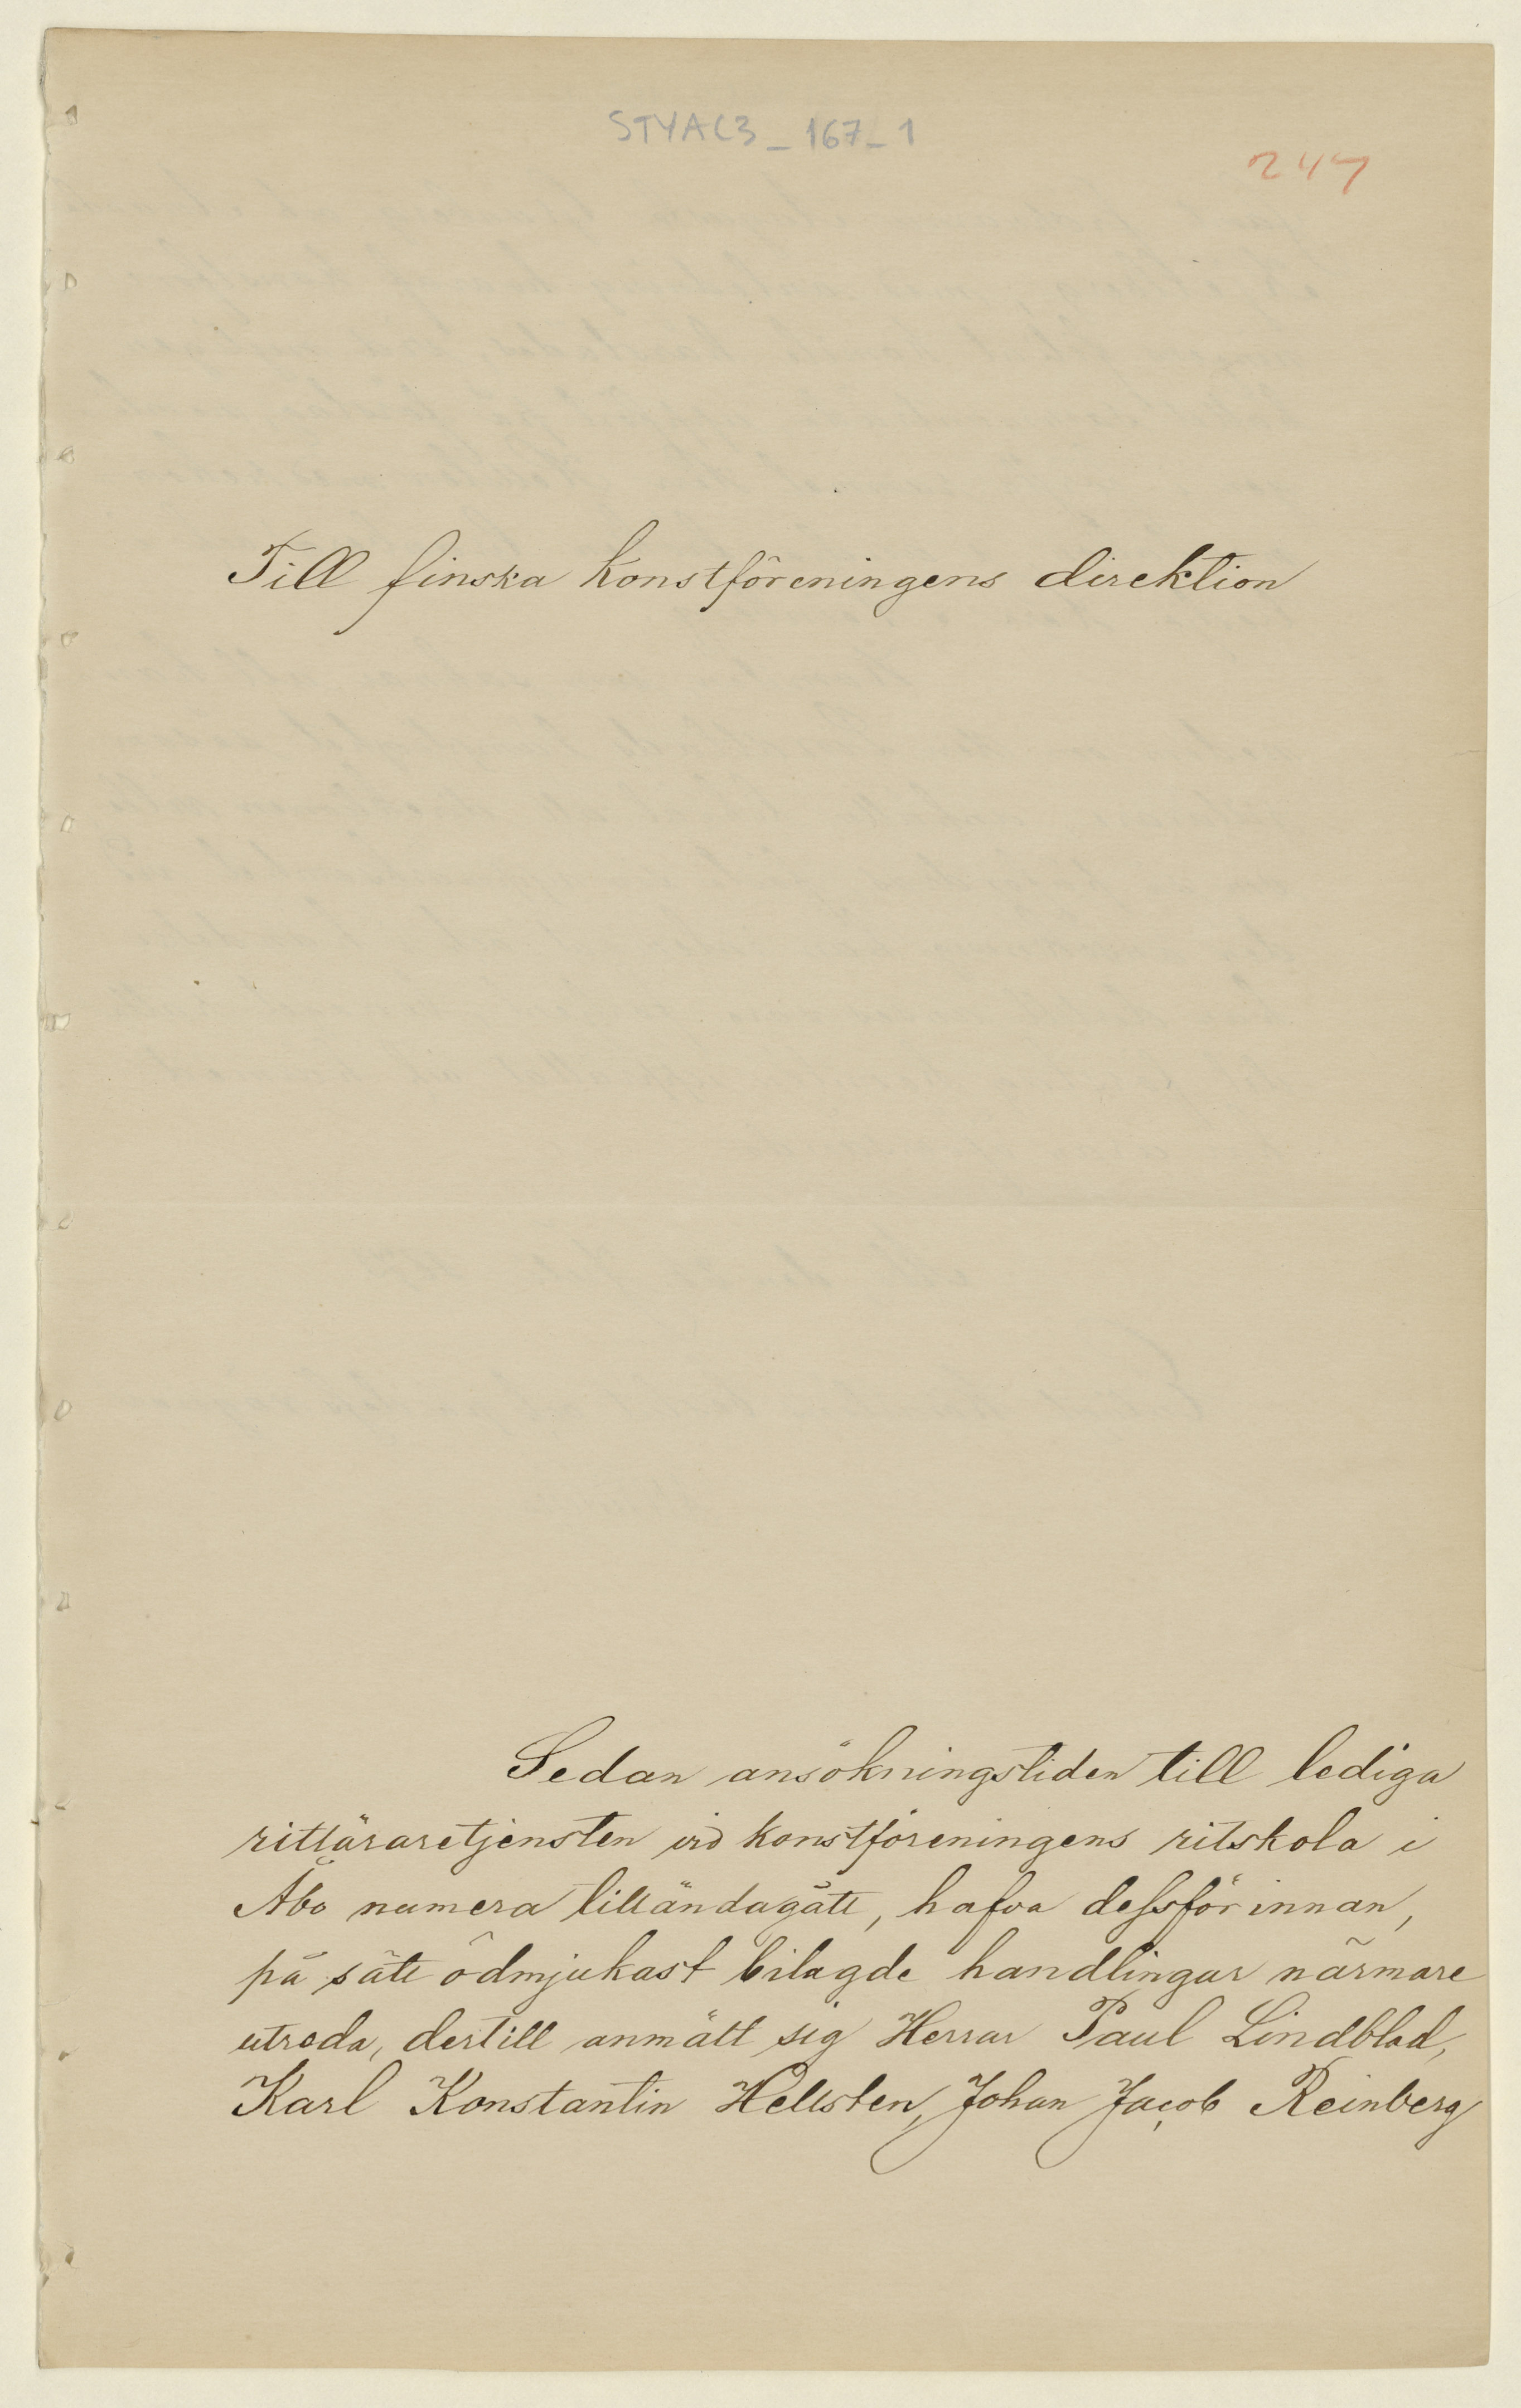 STYAC3_167_1
247
Till finska konstföreningens direktion
Sedan ansökningstiden till lediga
ritläraretjensten vid konstföreningens ritskola i
Åbo numera tilländagått, hafva dessförinnan,
på sätt ödmjukast bilagde handlingar närmare
utreda, dertill anmält sig Herrar Paul Lindblad,
Karl Konstantin Hellsten, Johan Jacob Reinberg